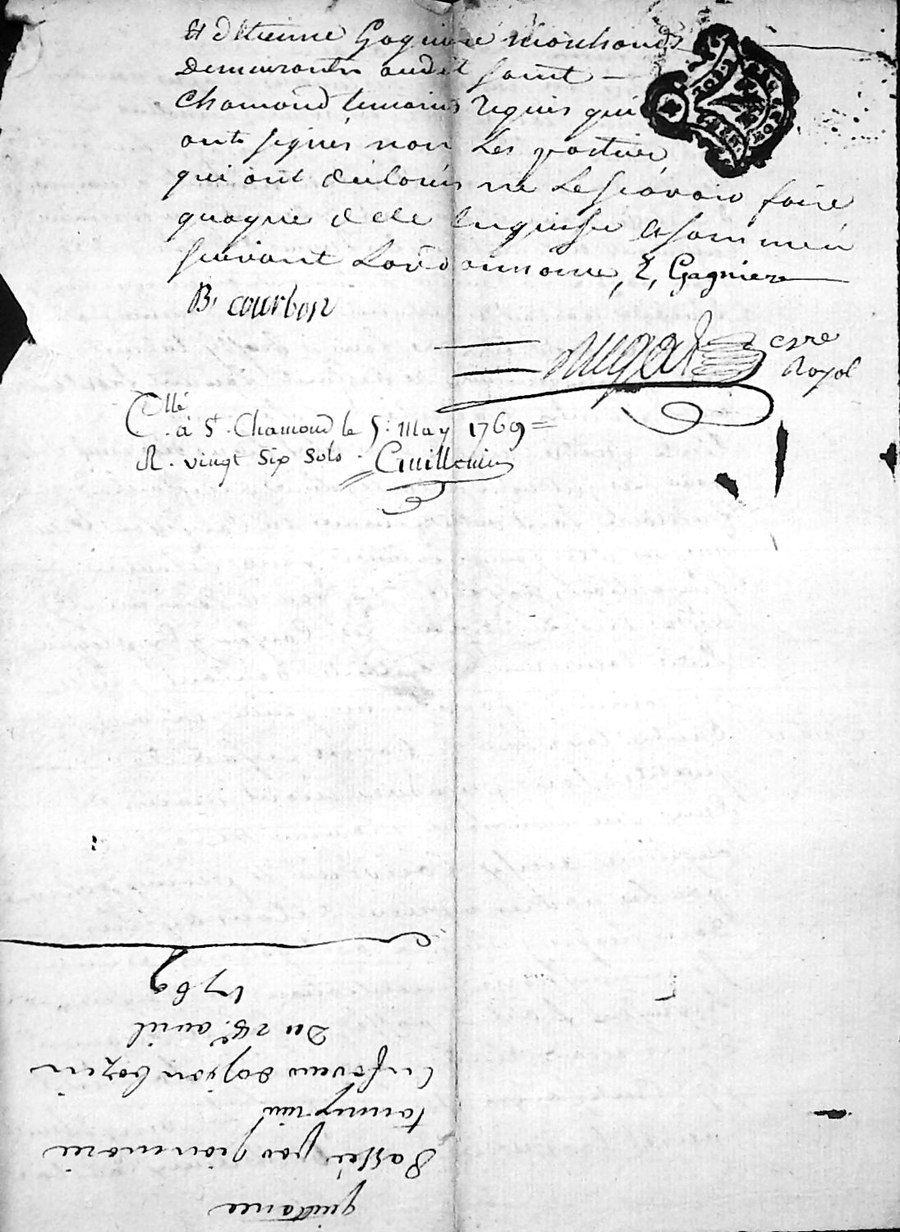 et d'Etienne Gagniere marchands
demeurants audit Saint
Chamond temoins requis qui
ont signés non les parties
qui ont déclarés ne le sçavoir faire
quoyque de ce enquises et sommées
suivant l'ordonnance, E, Gagniere
B. courbon
nore
Royal
C.llé
à St. Chamond le 5. May 1769
R. vingt six sols. Guillemin
quittance
Passée par
en faveur
Du 28e. avril
1769